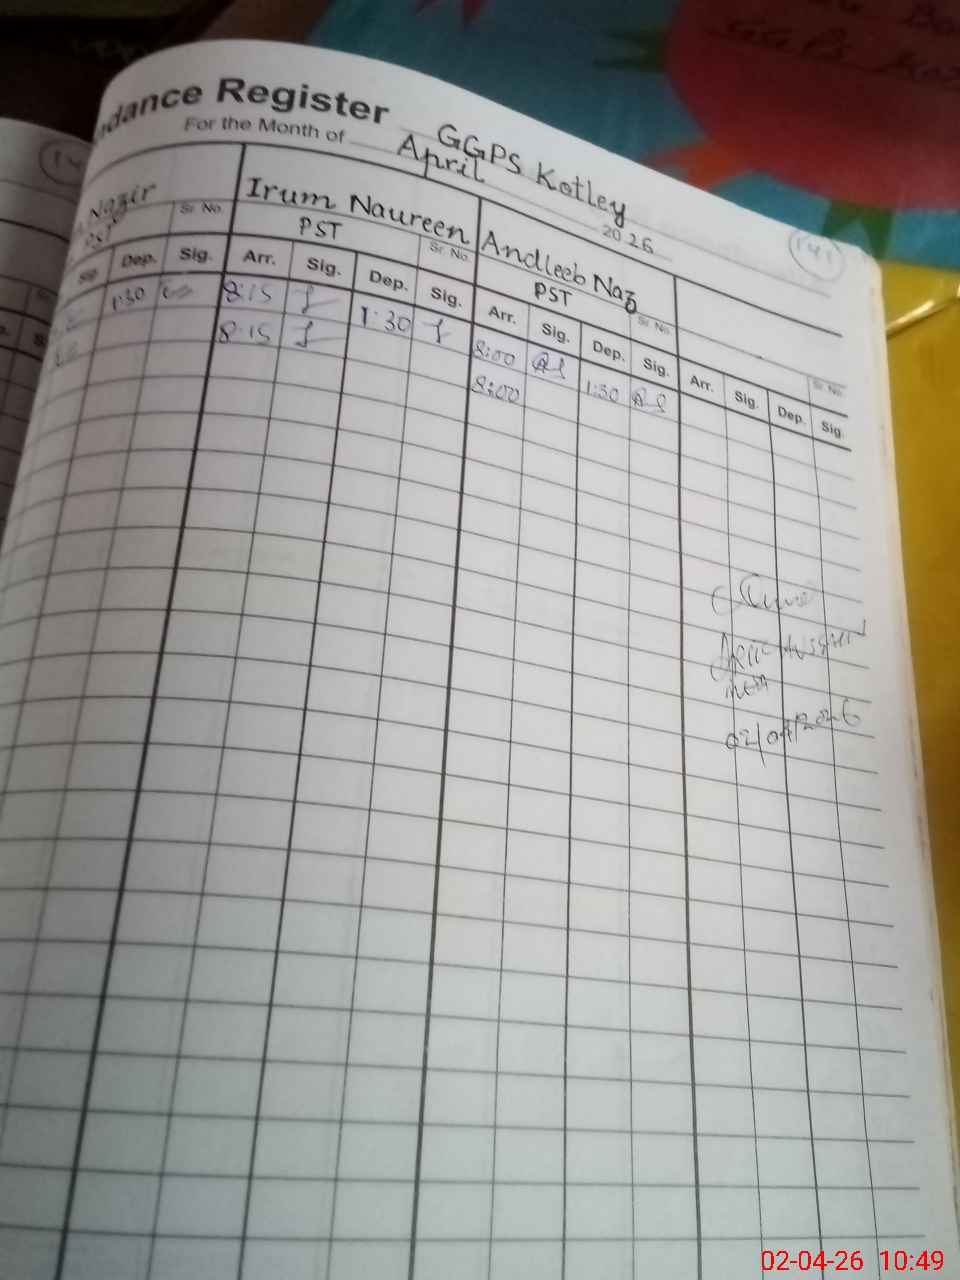 dance Register GGPS Kotley
For the Month of April 2026
141
Nazir Irum Naureen Andleeb Naz
PST PST PST
Sr. No. Sr. No. Sr. No. Sr. No.
Dep. Sig. Arr. Sig. Dep. Sig. Arr. Sig. Dep. Sig. Arr. Sig. Dep. Sig.
1:30 8:15 1:30 8:00 1:30
8:15 8:00
02/04/2026
02-04-26 10:49